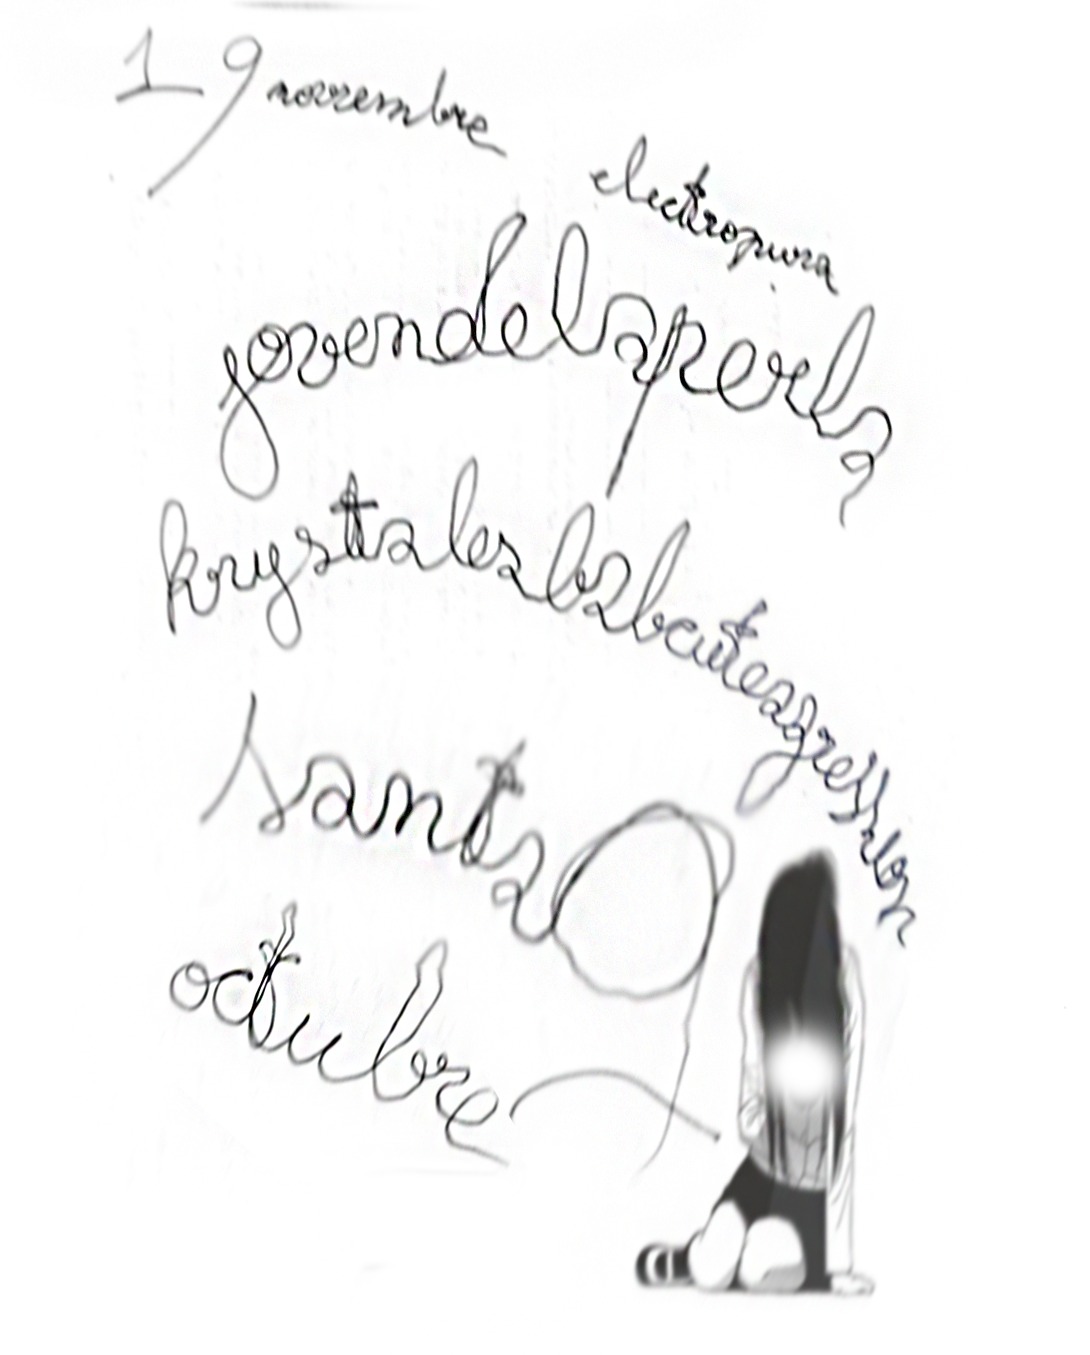 19 novembre
electropura
jovendelaperla
krystalesbabcutesagression
santa
octubre